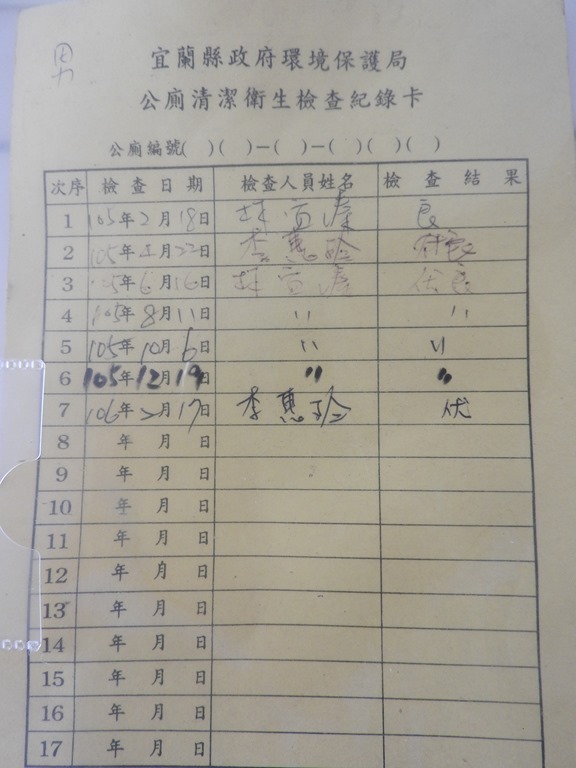 男
宜蘭縣政府環境保護局
公廁清潔衛生檢查紀錄卡
公廁編號( )( )－( )－( )( )( )
次序 檢查日期 檢查人員姓名 檢查結果
1 105年2月18日 林 良
2 105年4月22日 李惠玲
3 105年6月16日 林
4 105年8月11日 〃 〃
5 105年10月6日 〃 〃
6 105年12月19日 〃 〃
7 106年2月17日 李惠玲
8 年 月 日
9 年 月 日
10 年 月 日
11 年 月 日
12 年 月 日
13 年 月 日
14 年 月 日
15 年 月 日
16 年 月 日
17 年 月 日